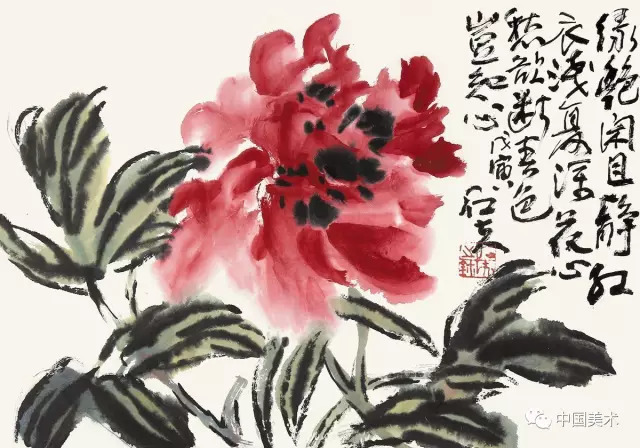 绿艳闲且静红
衣浅复深花心
愁欲断春色
岂知心 戊寅
中国美术